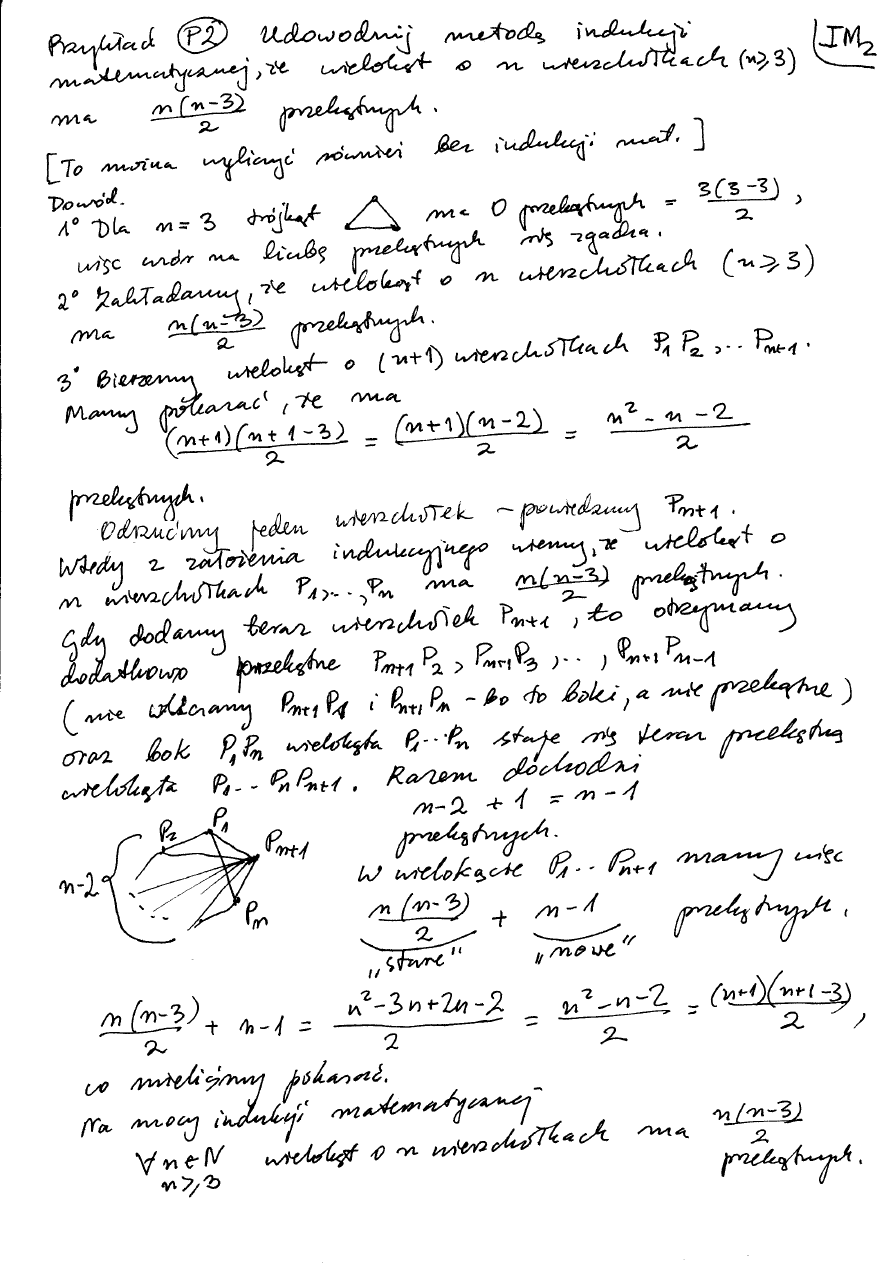 Przykład (P2) Udowodnij metodą indukcji IM₂
matematycznej, że wielokąt o n wierzchołkach (n≥3)
ma n(n-3)/2 przekątnych.
[To można wyliczyć również bez indukcji mat.]
Dowód.
1° Dla n=3 trójkąt △ ma 0 przekątnych = 3(3-3)/2,
więc wzór na liczbę przekątnych się zgadza.
2° Zakładamy, że wielokąt o n wierzchołkach (n≥3)
ma n(n-3)/2 przekątnych.
3° Bierzemy wielokąt o (n+1) wierzchołkach P₁ P₂, ... Pₙ₊₁.
Mamy pokazać, że ma
(n+1)(n+1-3)/2 = (n+1)(n-2)/2 = n²-n-2/2
przekątnych.
Odrzućmy jeden wierzchołek – powiedzmy Pₙ₊₁.
Wtedy z założenia indukcyjnego wiemy, że wielokąt o
n wierzchołkach P₁, ..., Pₙ ma n(n-3)/2 przekątnych.
Gdy dodamy teraz wierzchołek Pₙ₊₁, to otrzymamy
dodatkowo przekątne Pₙ₊₁P₂, Pₙ₊₁P₃, ..., Pₙ₊₁Pₙ₋₁
(nie wliczamy Pₙ₊₁P₁ i Pₙ₊₁Pₙ - bo to boki, a nie przekątne)
oraz bok P₁Pₙ wielokąta P₁...Pₙ staje się teraz przekątną
wielokąta P₁...PₙPₙ₊₁. Razem dochodzi
n-2 + 1 = n-1
przekątnych.
P₂ P₁ Pₙ₊₁
n-2
Pₙ
W wielokącie P₁...Pₙ₊₁ mamy więc
n(n-3)/2 + n-1 przekątnych.
„stare" „nowe"
n(n-3)/2 + n-1 = n²-3n+2n-2/2 = n²-n-2/2 = (n+1)(n+1-3)/2,
co mieliśmy pokazać.
Na mocy indukcji matematycznej
∀n∈N wielokąt o n wierzchołkach ma n(n-3)/2
n≥3 przekątnych.